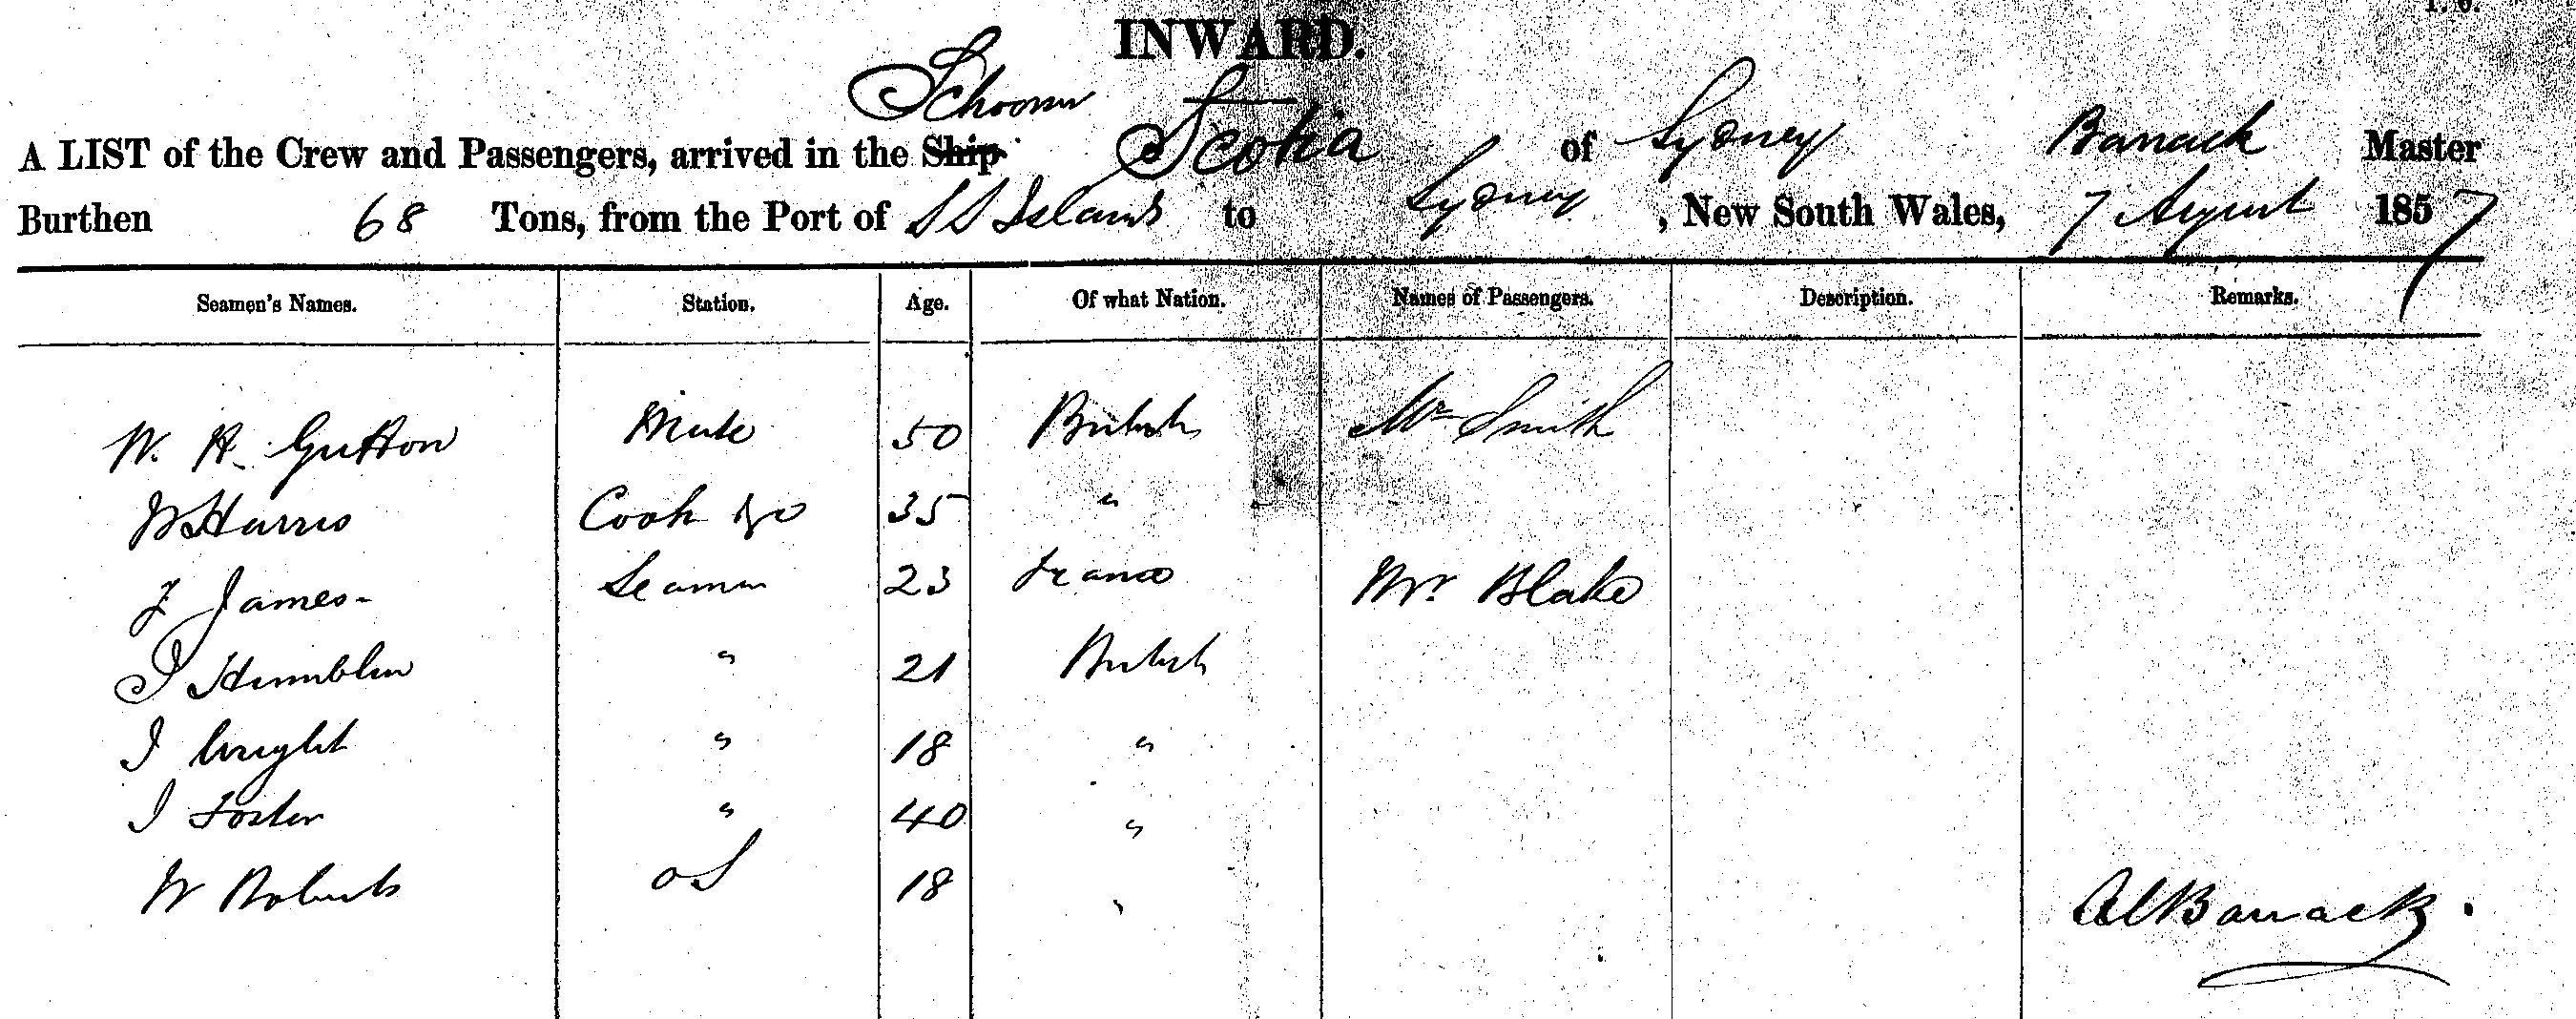 INWARD.
Schooner
A LIST of the Crew and Passengers, arrived in the Ship Scotia of Sydney Banack Master
Burthen 68 Tons, from the Port of S S Islands to Sydney, New South Wales, 7 August 1857
Seamen's Names. Station. Age. Of what Nation. Names of Passengers. Description. Remarks.
W. H. Gutton Mate 50 British Mr Smith
W Harris Cook &c 35 "
J James - Seaman 23 France Mr. Blake
J " 21 British
J Wright " 18 "
J Foster " 40 "
W Roberts OS 18 "
Banack.